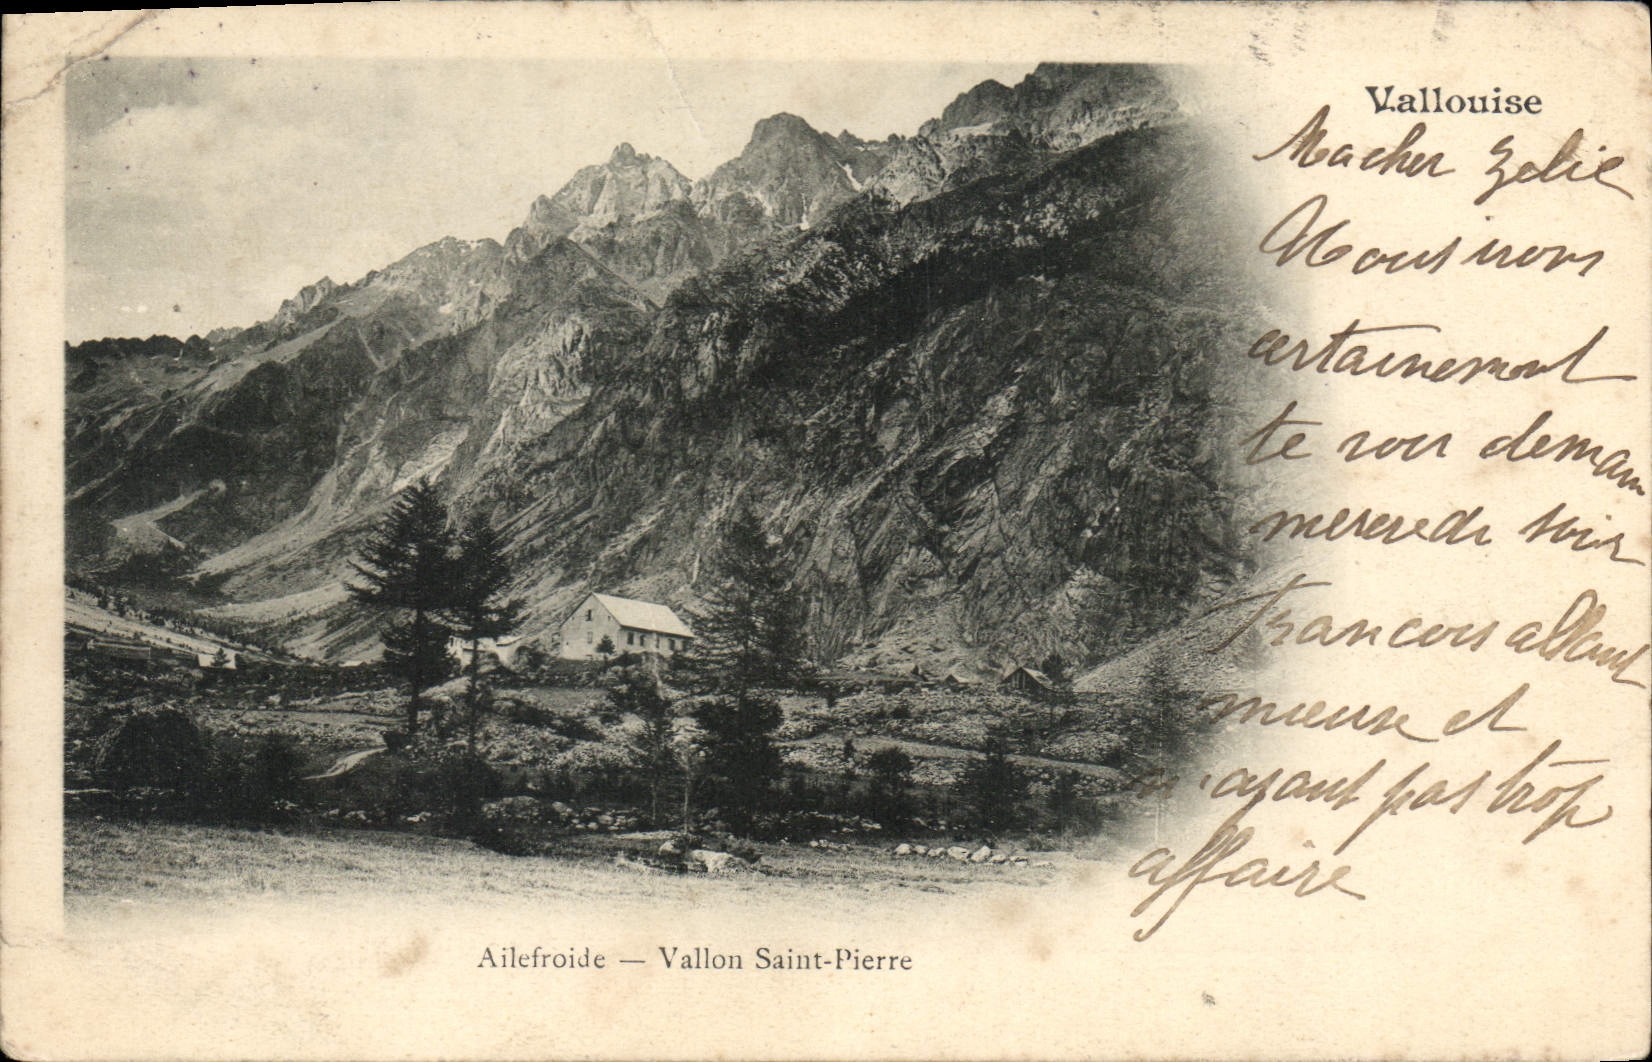 Vallouise
Macher Zelie
Nous irons
certainement
te voir demain
mercredi soir
Francois allant
mieux et
n'ayant pas trop
affaire
Ailefroide — Vallon Saint-Pierre